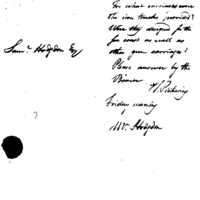 For what carriages were
the iron trucks provided?
Were they designed for the
sea coast as well as
other gun carriages?
Please answer by the
Bearer
T. Pickering
Friday morning
Mr. Hodgdon
Saml. Hodgdon Esq